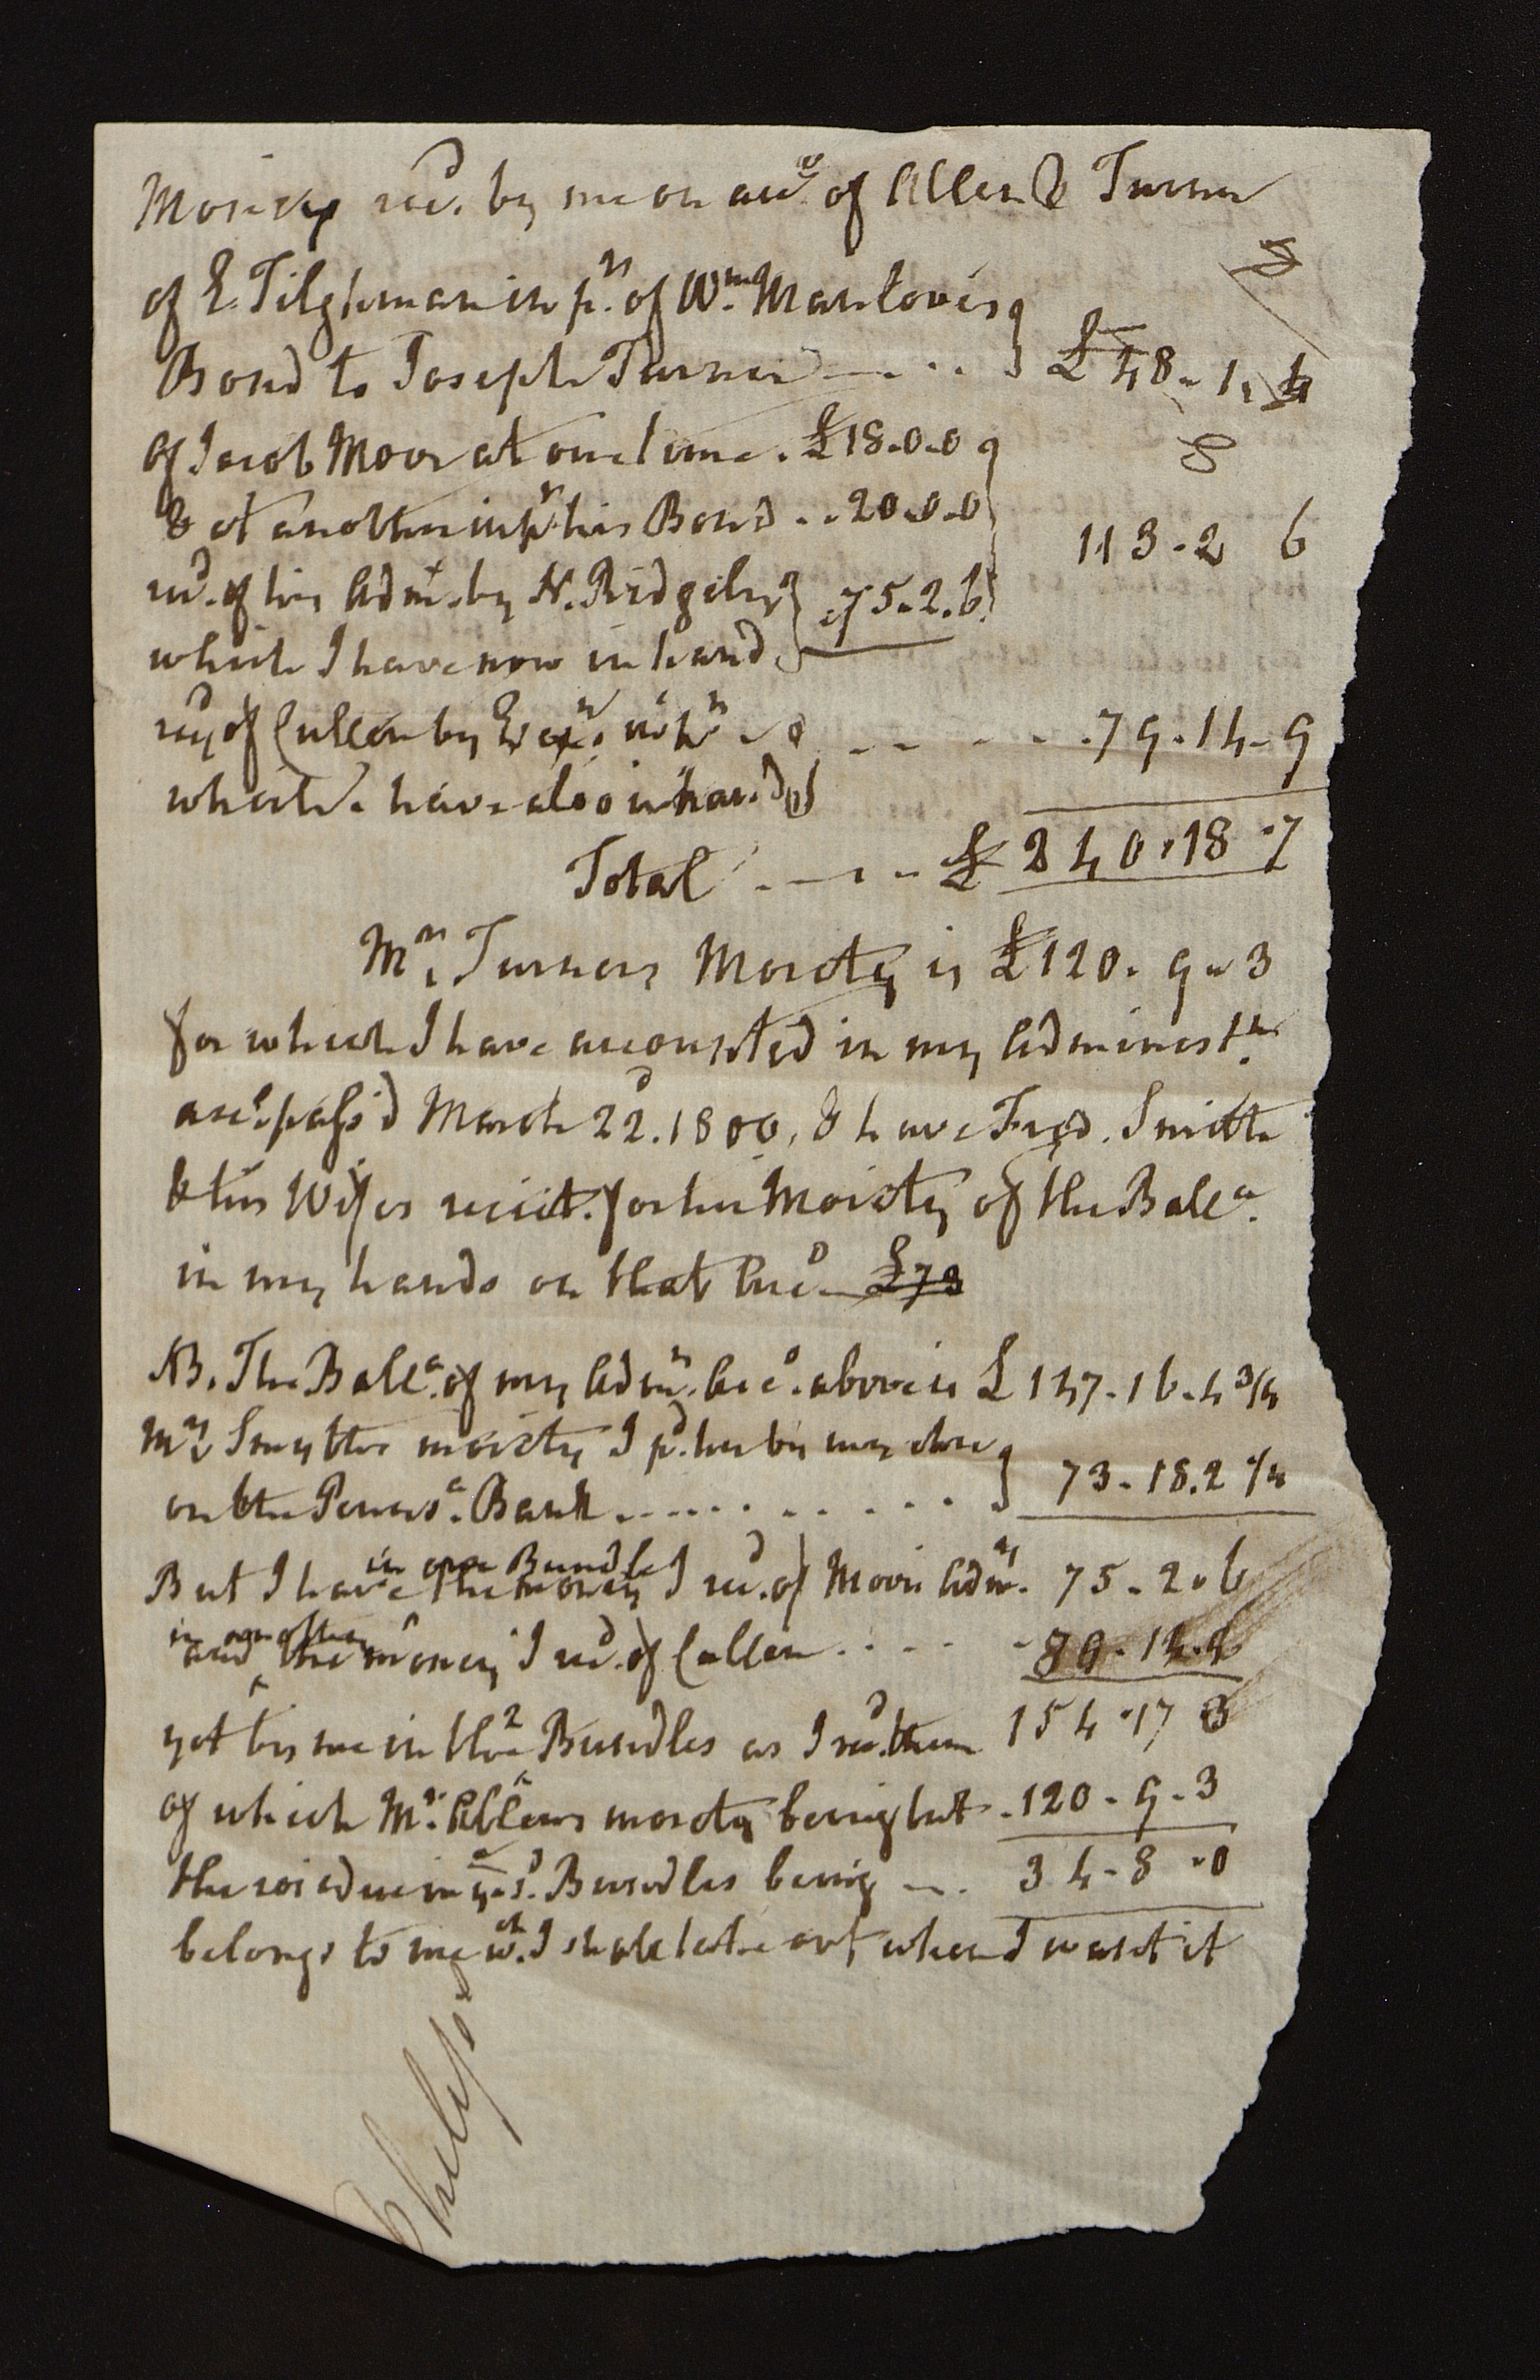 Moneys recd. by me on acco. of Allen & Turner
of E. Tilghman in pt. of Wm. Manlove's
Bond to Joseph Turner £48-1-4
of Jacob Moor at one time. £18-0-0
& at another in pt his Bond .. 20-0-0 113-2 6
recd. of his Admr. by N. Ridgely 75-2.6
which I have now in hand
recd of Cullen by Exr. 79-14-9
which I have also in hand
Total £240-18-7
Mr. Turners Moiety is £120. 9-3
for which I have accounted in my Administn.
acco. pass'd March 22d. 1800, & have Fred. Smith
& his Wifes receit. for her Moiety of the Balla.
in my hands on that Acco. £73
NB. The Balla. of my Admn. Acco. above is £147-16-4 3/4
Mrs. Smyths moiety I pd. her by my check
on the Pennsa. Bank 73-18.2 1/4
in one Bundle
But I have the money I recd. of Moors Admr. 75-2-6
in another
and the money I recd. of Cullen 79-14-9
yet by me in the 2 Bundles as I recd. them 154-17 3
of which Mr. Allens moiety being but 120-9-3
the residue in ye sd. Bundles being 34-8-0
belongs to me wch. I shall take out when I want it
Philips